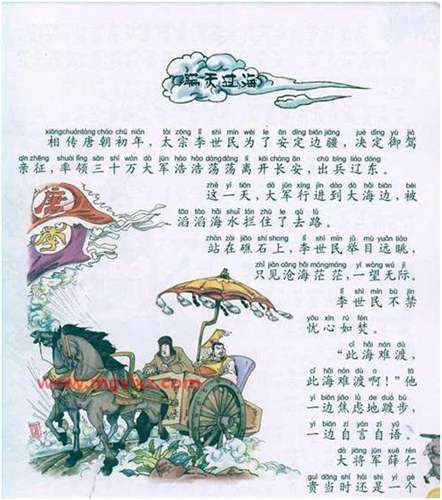 瞒天过海
xiāngchuántáng cháo chū nián tài zōng lǐ shì mín wèi le ān dìng biān jiāng jué dìng yù jià
相传唐朝初年，太宗李世民为了安定边疆，决定御驾
qīn zhēng shuài lǐng sān shí wàn dà jūn hào hào dàng dàng lí kāi cháng ān chū bīng liáo dōng
亲征，率领三十万大军浩浩荡荡离开长安，出兵辽东。
zhè yì tiān dà jūn xíng jìn dào dà hǎi biān bèi
这一天，大军行进到大海边，被
tāo tāo hǎi shuǐ lán zhù le qù lù
滔滔海水拦住了去路。
zhàn zài jiāo shí shang lǐ shì mín jǔ mù yuǎn tiào
站在礁石上，李世民举目远眺，
zhǐ jiàn cāng hǎi máng máng yí wàng wú jì
只见沧海茫茫，一望无际。
lǐ shì mín bù jīn
李世民不禁
yōu xīn rú fén
忧心如焚。
cǐ hǎi nán dù
“此海难渡，
cǐ hǎi nán dù a tā
此海难渡啊！”他
yì biān jiāo lǜ de duó bù
一边焦虑地踱步，
yì biān zì yán zì yǔ
一边自言自语。
dà jiàng jūn xuē rén
大将军薛仁
guì dāng shí hái shì yí gè
贵当时还是一个
唐